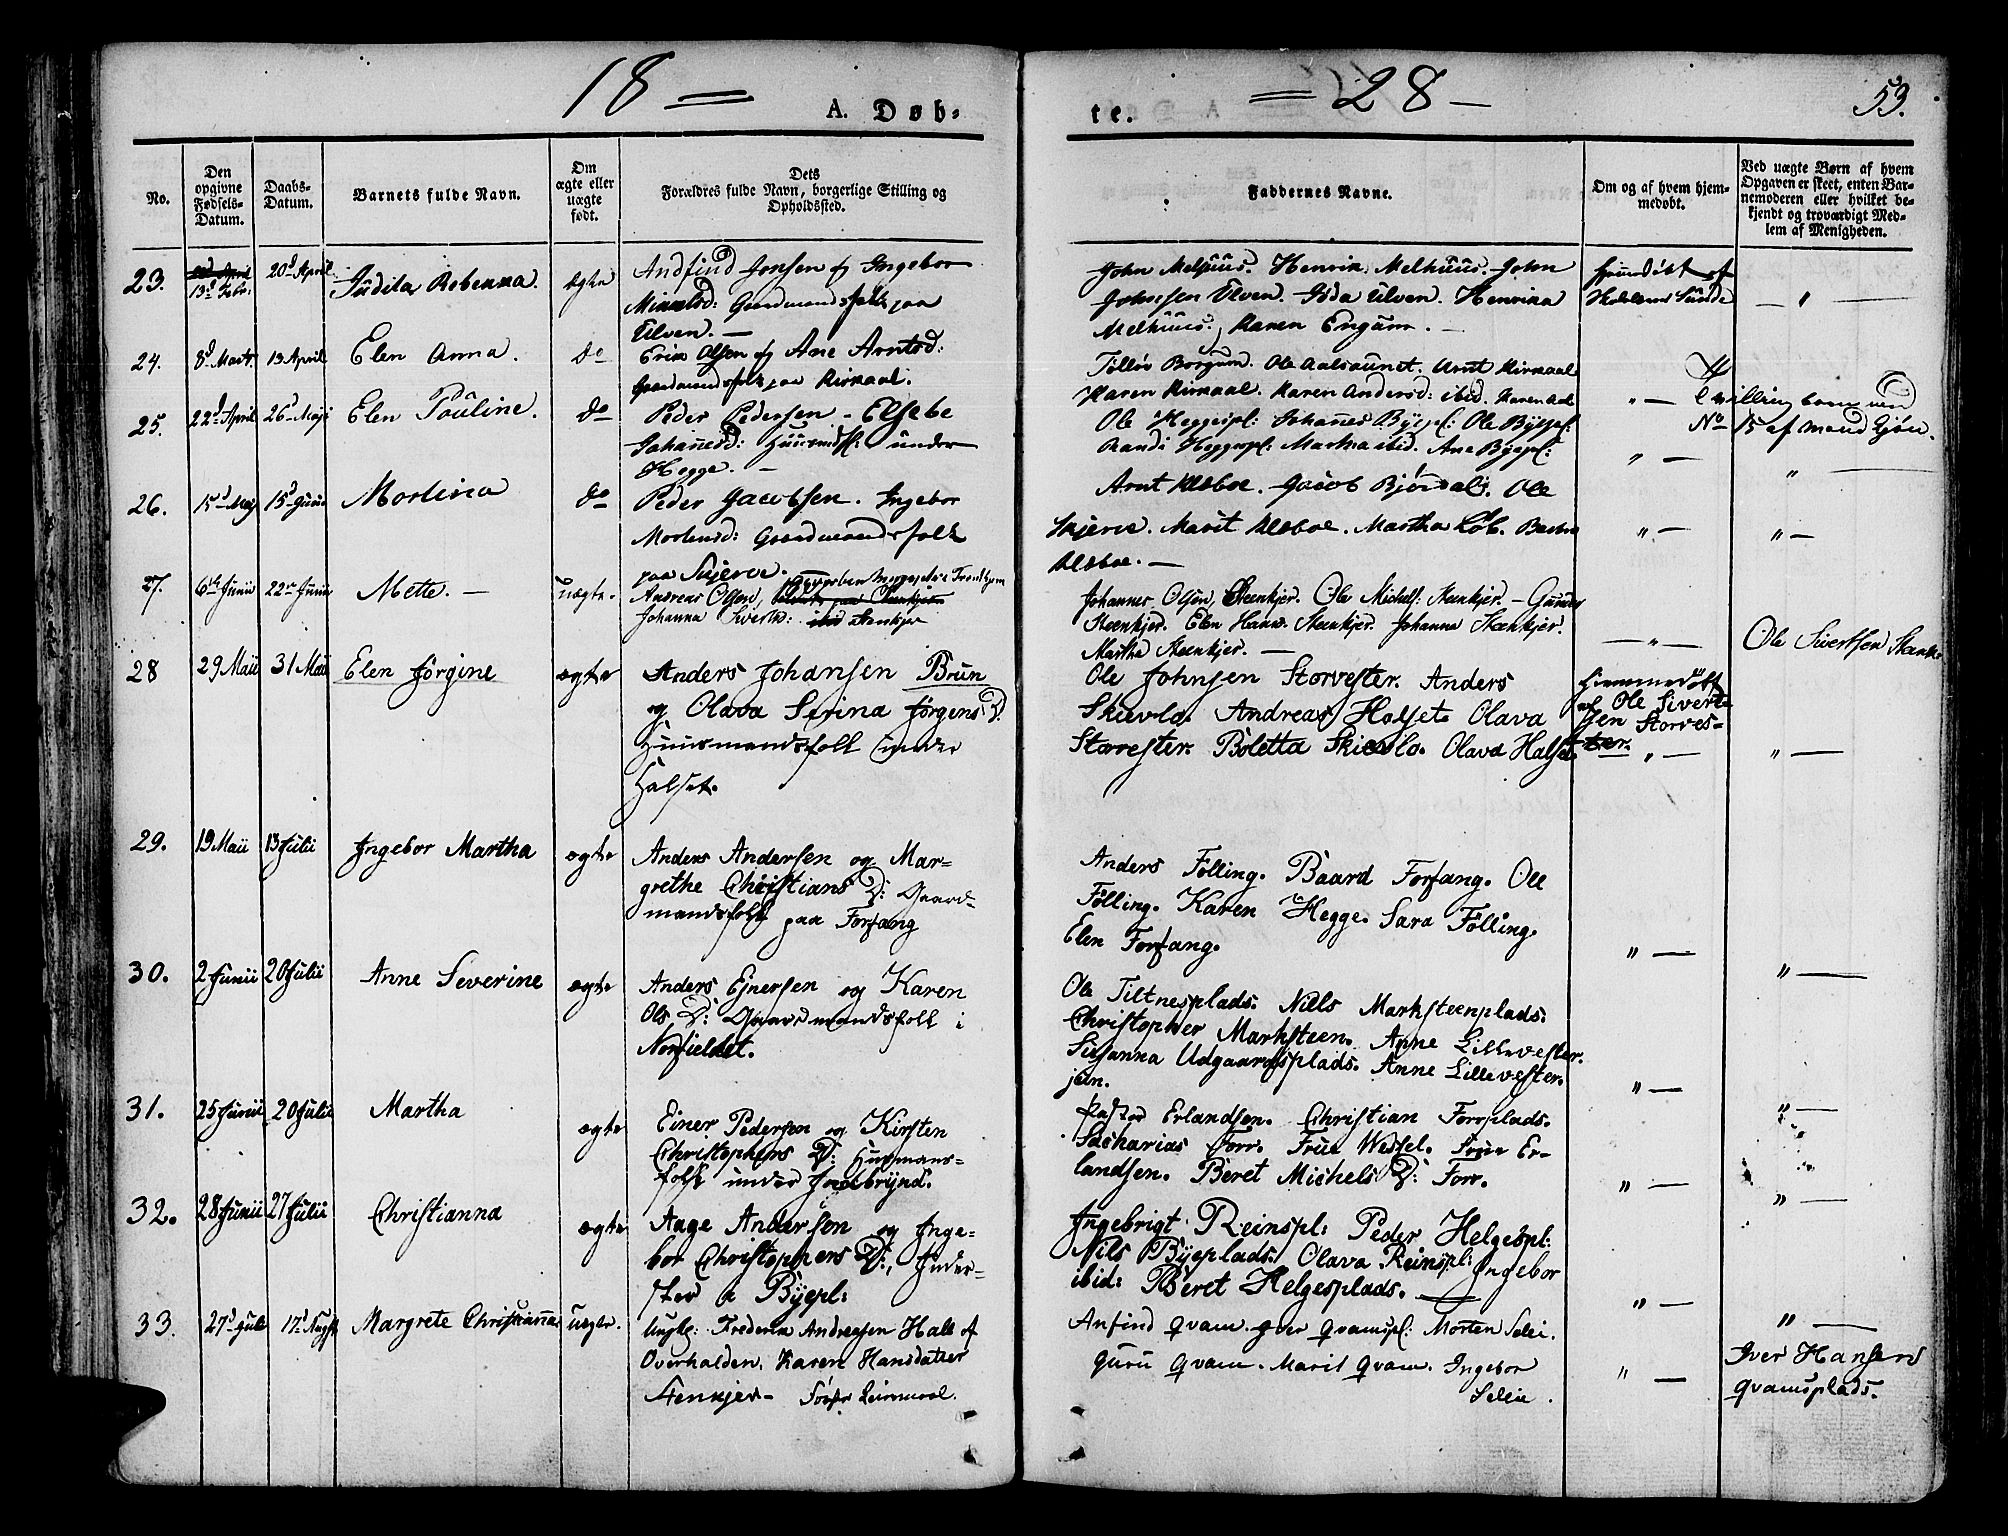 18 =
A. Døb-
te.
= 28 -
53.
No.
Den opgivne Fødsels-Datum.
Daabs-Datum.
Barnets fulde Navn.
Om ægte eller uægte født.
Dets Forældres fulde Navn, borgerlige Stilling og Opholdssted.
Faddernes Navne.
Om og af hvem hjem-medøbt.
Ved uægte Børn af hvem Opgaven er skeet, enten Bar-nemoderen eller hvilket be-kjendt og troværdigt Med-lem af Menigheden.
23. 13d Febr: 20d April Judita Rebenna. ægte
Andfind Jonsen og Ingebor
Gaardmandsfolk paa
Ulven. —
John Melhuus. Henrik Melhuus. John
Johnsen Ulven. Ulven. Henrika
Melhuus. Karen Engum. —
Hjemdøbt af
Sunde
— " —
24. 8d Marts 13 April Elen Anna. do
Erik Olsen og Ane Arntsd:
Gaardmandsfolk paa Kirkaal.
Borgum. Ole Aalsaunet. Arnt Kirkaal
Karen Kirkaal. Karen Andersd: ibid.
" —
25. 22d April 26d Maji Elen Pauline. do
Peder Pedersen - Elsebe
Johannesd: under
Hegge. —
Ole Heggespl: Johannes Byepl: Ole Byepl:
Randi Heggespl: Martha ibid. Ane Byepl:
Tvilling
No 15 af
" — " —
26. 15d Maj 15d Junii Mortina do
Peder Jacobsen. Ingebor
Mortensd: Gaardmandsfolk
paa Skjerve.
Arnt Klæboe. Jacob Bjørdal. Ole
Skjerve. Marit Klæboe. Martha
Klæboe. —
" — " —
27. 6te Junii 22de Junii Mette. — uægte.
Andreas Olsen,
Johanna Sivertsd: Stenkjer
Johannes Olsen, Steenkjer. Ole Michels: Steenkjer —
Steenkjer. Elen Hans. Steenkjer. Johanna Steenkjer.
Martha Steenkjer. —
— " — Ole Sivertsen
28 29 Maii 31 Maii Elen Jørgine ægte
Anders Johansen Brun
og Olava Serina Jørgens D.
Huusmandsfolk under
Halset.
Ole Johnsen Storvester. Anders
Skievlo. Andreas Halset. Olava
Storvester. Boletta Skievlo. Olava Halset.
Hiemmedøbt
af Ole Sivert-
sen Storves-
ter. " — " —
29. 19 Maii 13 Julii Ingebor Martha ægte
Anders Andersen og Mar-
grethe Christians D: Gaard-
mandsfolk paa Forfang
Anders Følling. Baard Forfang. Ole
Følling. Karen Hegge. Sara Følling.
Elen Forfang.
" — " —
30. 2 Junii 20 Julii Anne Severine ægte
Anders Ejnersen og Karen
Ols D: Gaardmandsfolk i
Norfieldet.
Ole Tiltnesplads. Nills Marksteenplads.
Christopher Marksteen. Anne Lillevester.
Susanna Udgaardsplads. Anne Lillevester.
jun.
" — " —
31. 25 Junii 20 Julii Martha ægte
Einer Pedersen og Kirsten
Christophers D: Husmans-
folk under
Pastor Erlandsen. Christian Forrplads.
Sacharias Forr. Frue Wessel. Frue Er-
landsen. Beret Michels D: Forr.
" — " —
32. 28 Junii 27 Julii Christianna ægte
Aage Andersen og Inge-
bor Christophers D:, Inder-
ster a Byepl:
Ingebrigt Reinspl: Peder Helgespl:
Nils Byeplads. Olava Reinspl: Ingebor
ibid: Beret Helgesplads. —
" — " —
33. 27d Julii 17d Augst Margrete Christianna uægte.
Ungk: Frederik Andreasen Hall af
Overhalden. Karen Hansdatter
Stenkjer —
Anfind Qvam. Iver Qvamspl: Morten Selei.
Guru Qvam. Marit Qvam. Ingebor
Seleie.
" — Iver Hansen
Qvamsplads.